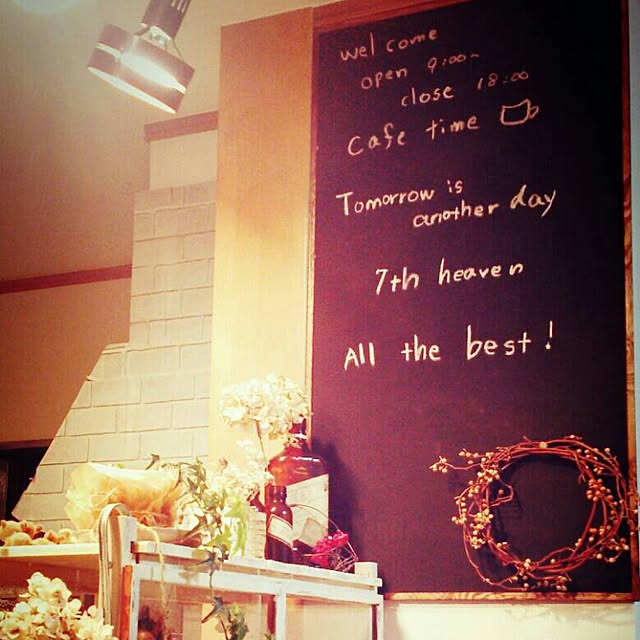 welcome
open 9:00~
close 18:00
Cafe time
Tomorrow is
another day
7th heaven
All the best!